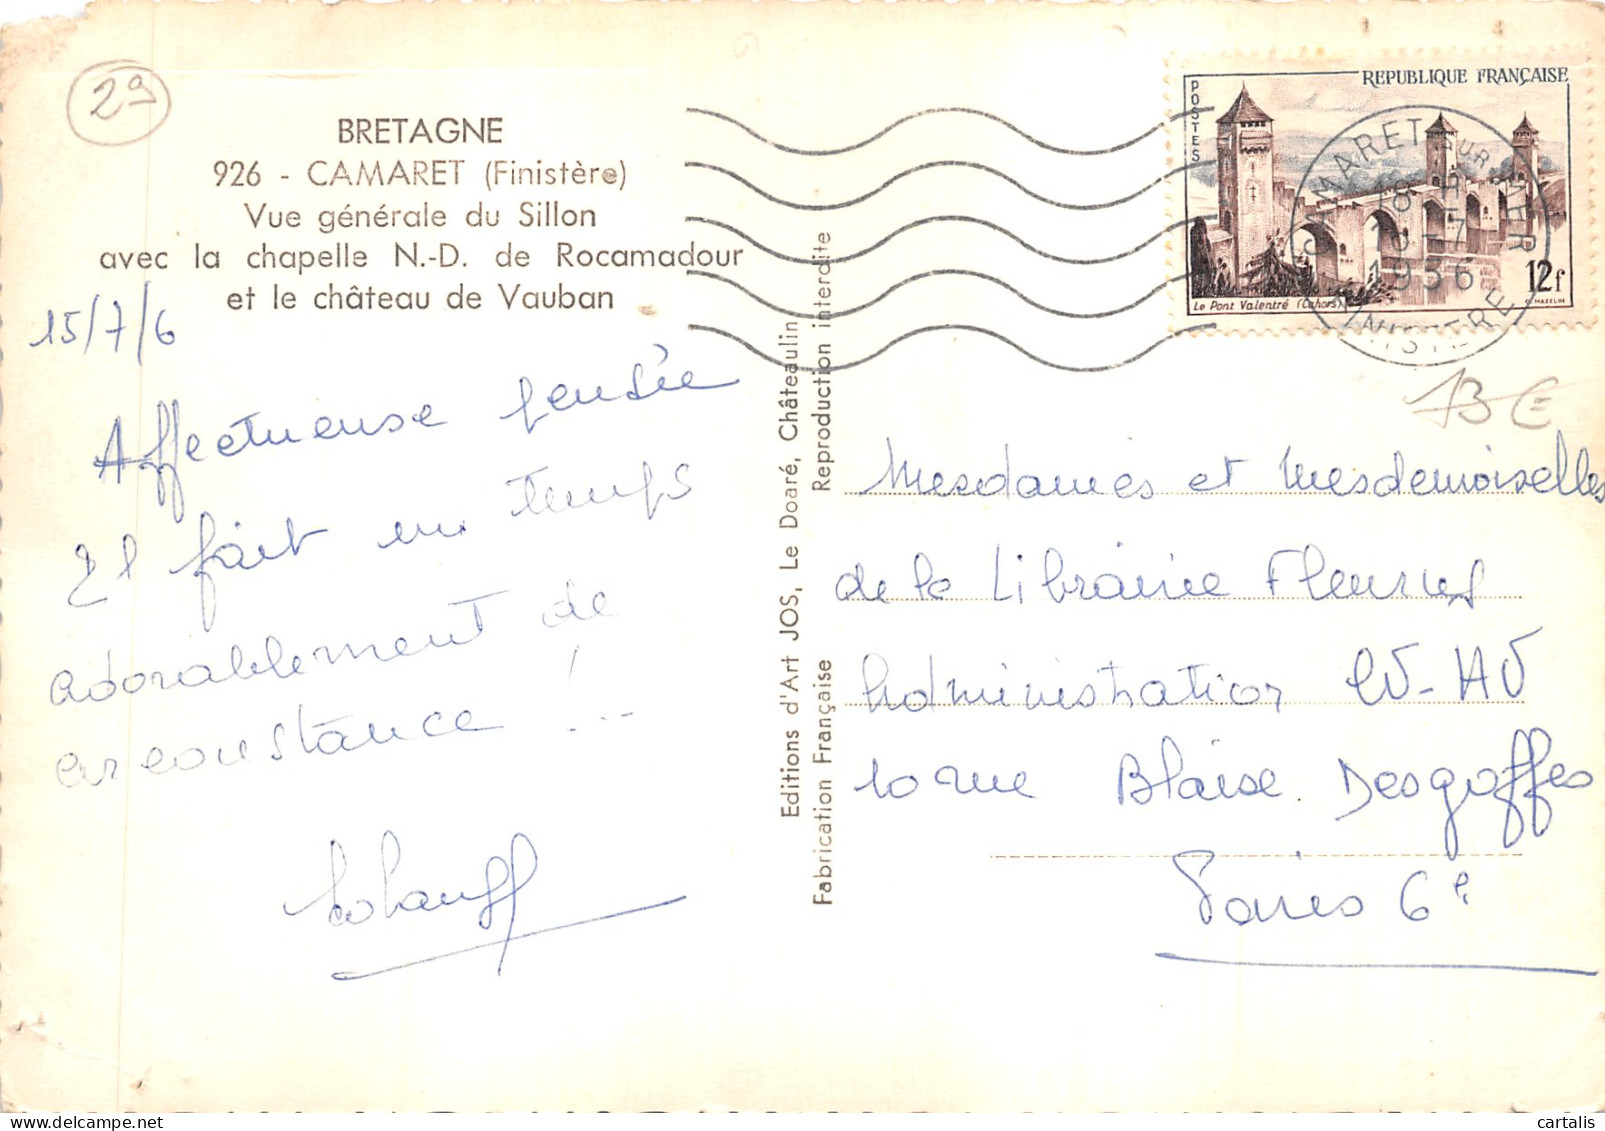 29
BRETAGNE
926 - CAMARET (Finistère)
Vue générale du Sillon
avec la chapelle N.-D. de Rocamadour
et le château de Vauban
15/7/6
Affectueuse pensée
Il fait un temps
adorablement de
circonstance ! ...
Editions d'Art JOS, Le Doaré, Châteaulin
Fabrication Française
Reproduction interdite
POSTES
REPUBLIQUE FRANÇAISE
Le Pont Valentré (Cahors)
12f
MAZELIN
CAMARET SUR MER
18 H 15
1956
FINISTERE
13 €
Mesdames et Mesdemoiselles
de la Librairie Fleurus
Administration CV-AV
10 rue Blaise Desgoffes
Paris 6e
cartalis